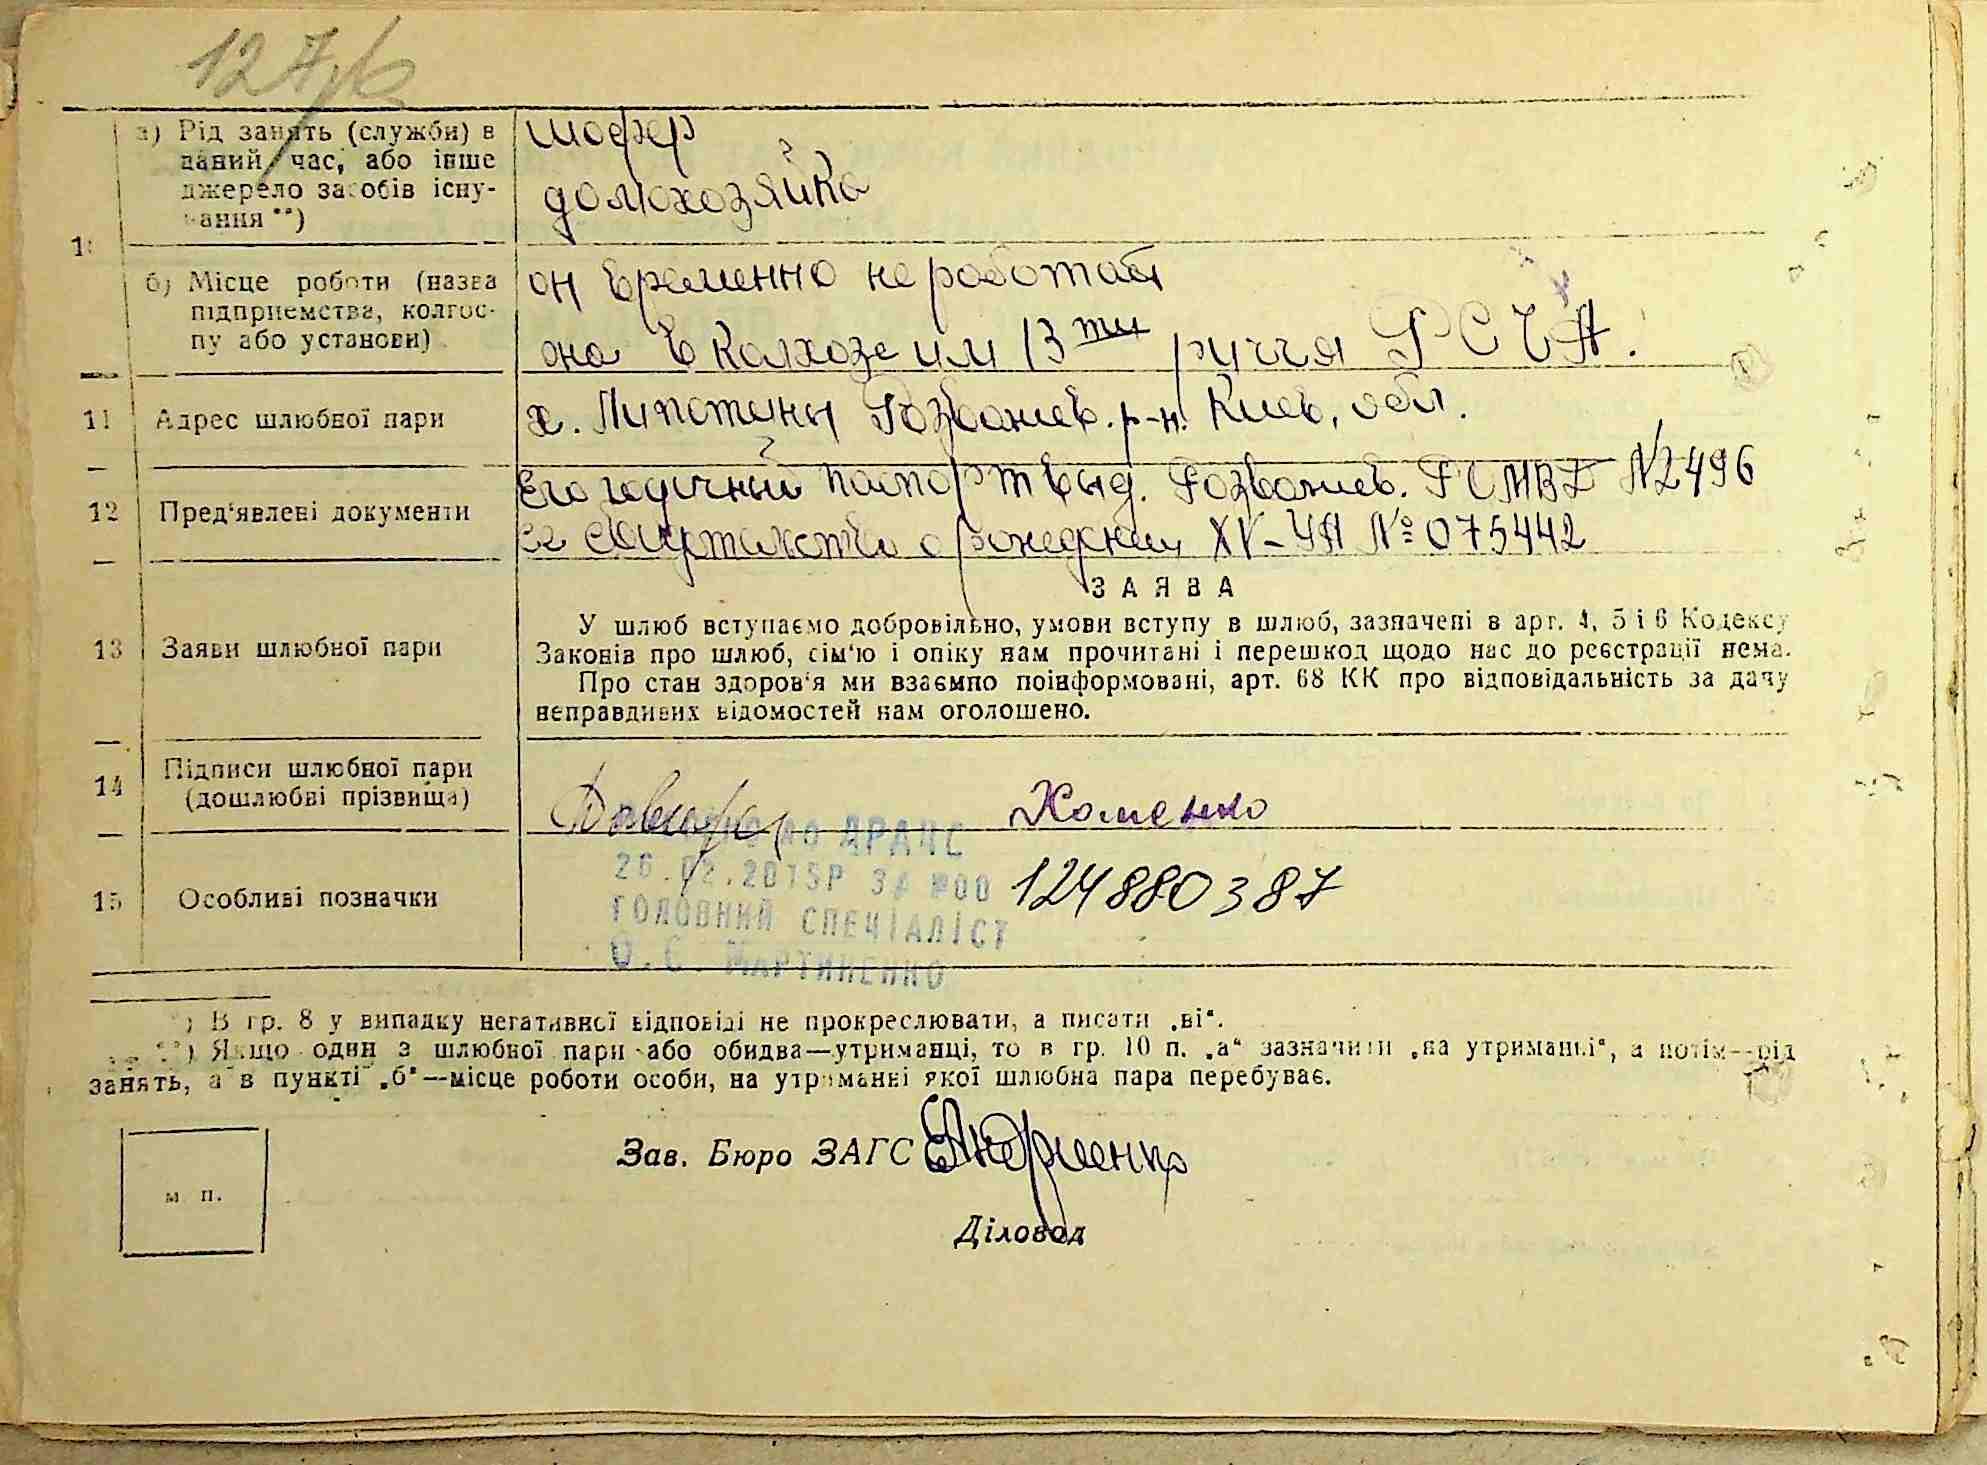 127
а) Рід занять (служби) в
даний час, або інше
джерело засобів існу-
вання **)
шофер
домохозяйка
10
б) Місце роботи (назва
підприємства, колгос-
пу або установи)
он временно не работает
она в колхозе им 13ти річчя РСЧА.
11 Адрес шлюбної пари
х. Липотины Розважев. р-н. Киев. обл.
12 Пред'явлені документи
Его годичный паспорт выд. Розважев. РОМВД N2496
ее свидетельство о рождении XV-УЯ №075442
13 Заяви шлюбної пари
ЗАЯВА
У шлюб вступаємо добровільно, умови вступу в шлюб, зазначені в арт. 4, 5 і 6 Кодексу
Законів про шлюб, сім'ю і опіку нам прочитані і перешкод щодо нас до реєстрації нема.
Про стан здоров'я ми взаємно поінформовані, арт. 68 КК про відповідальність за дачу
неправдивих відомостей нам оголошено.
14 Підписи шлюбної пари
(дошлюбні прізвища)
Хоменко
до ДРАЦС
26.02.2015Р ЗА №00 124880387
ГОЛОВНИЙ СПЕЦІАЛІСТ
О.Є. МАРТИНЕНКО
15 Особливі позначки
*) В гр. 8 у випадку негативної відповіді не прокреслювати, а писати „ні“.
**) Якщо один з шлюбної пари або обидва—утриманці, то в гр. 10 п. „а“ зазначити „на утриманні“, а потім—рід
занять, а в пункті „б“—місце роботи особи, на утриманні якої шлюбна пара перебуває.
Зав. Бюро ЗАГС
м. п.
Діловод